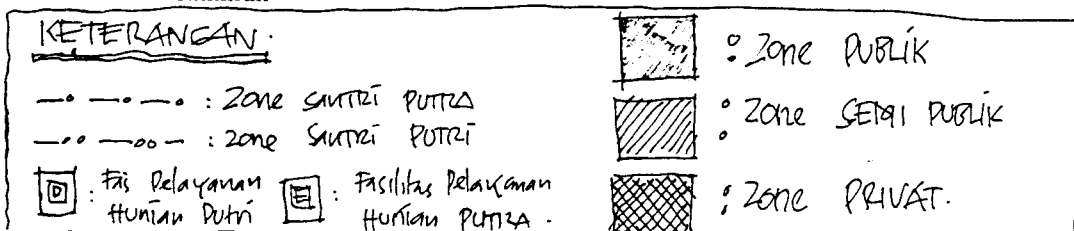 KETERANGAN.
: Zone SANTRI PUTRA
: Zone SANTRI PUTRI
D : Fas Pelayanan Hunian Putri
E : Fasilitas Pelayanan Hunian PUTRA.
: Zone PUBLIK
: Zone SEMI PUBLIK
: Zone PRIVAT.